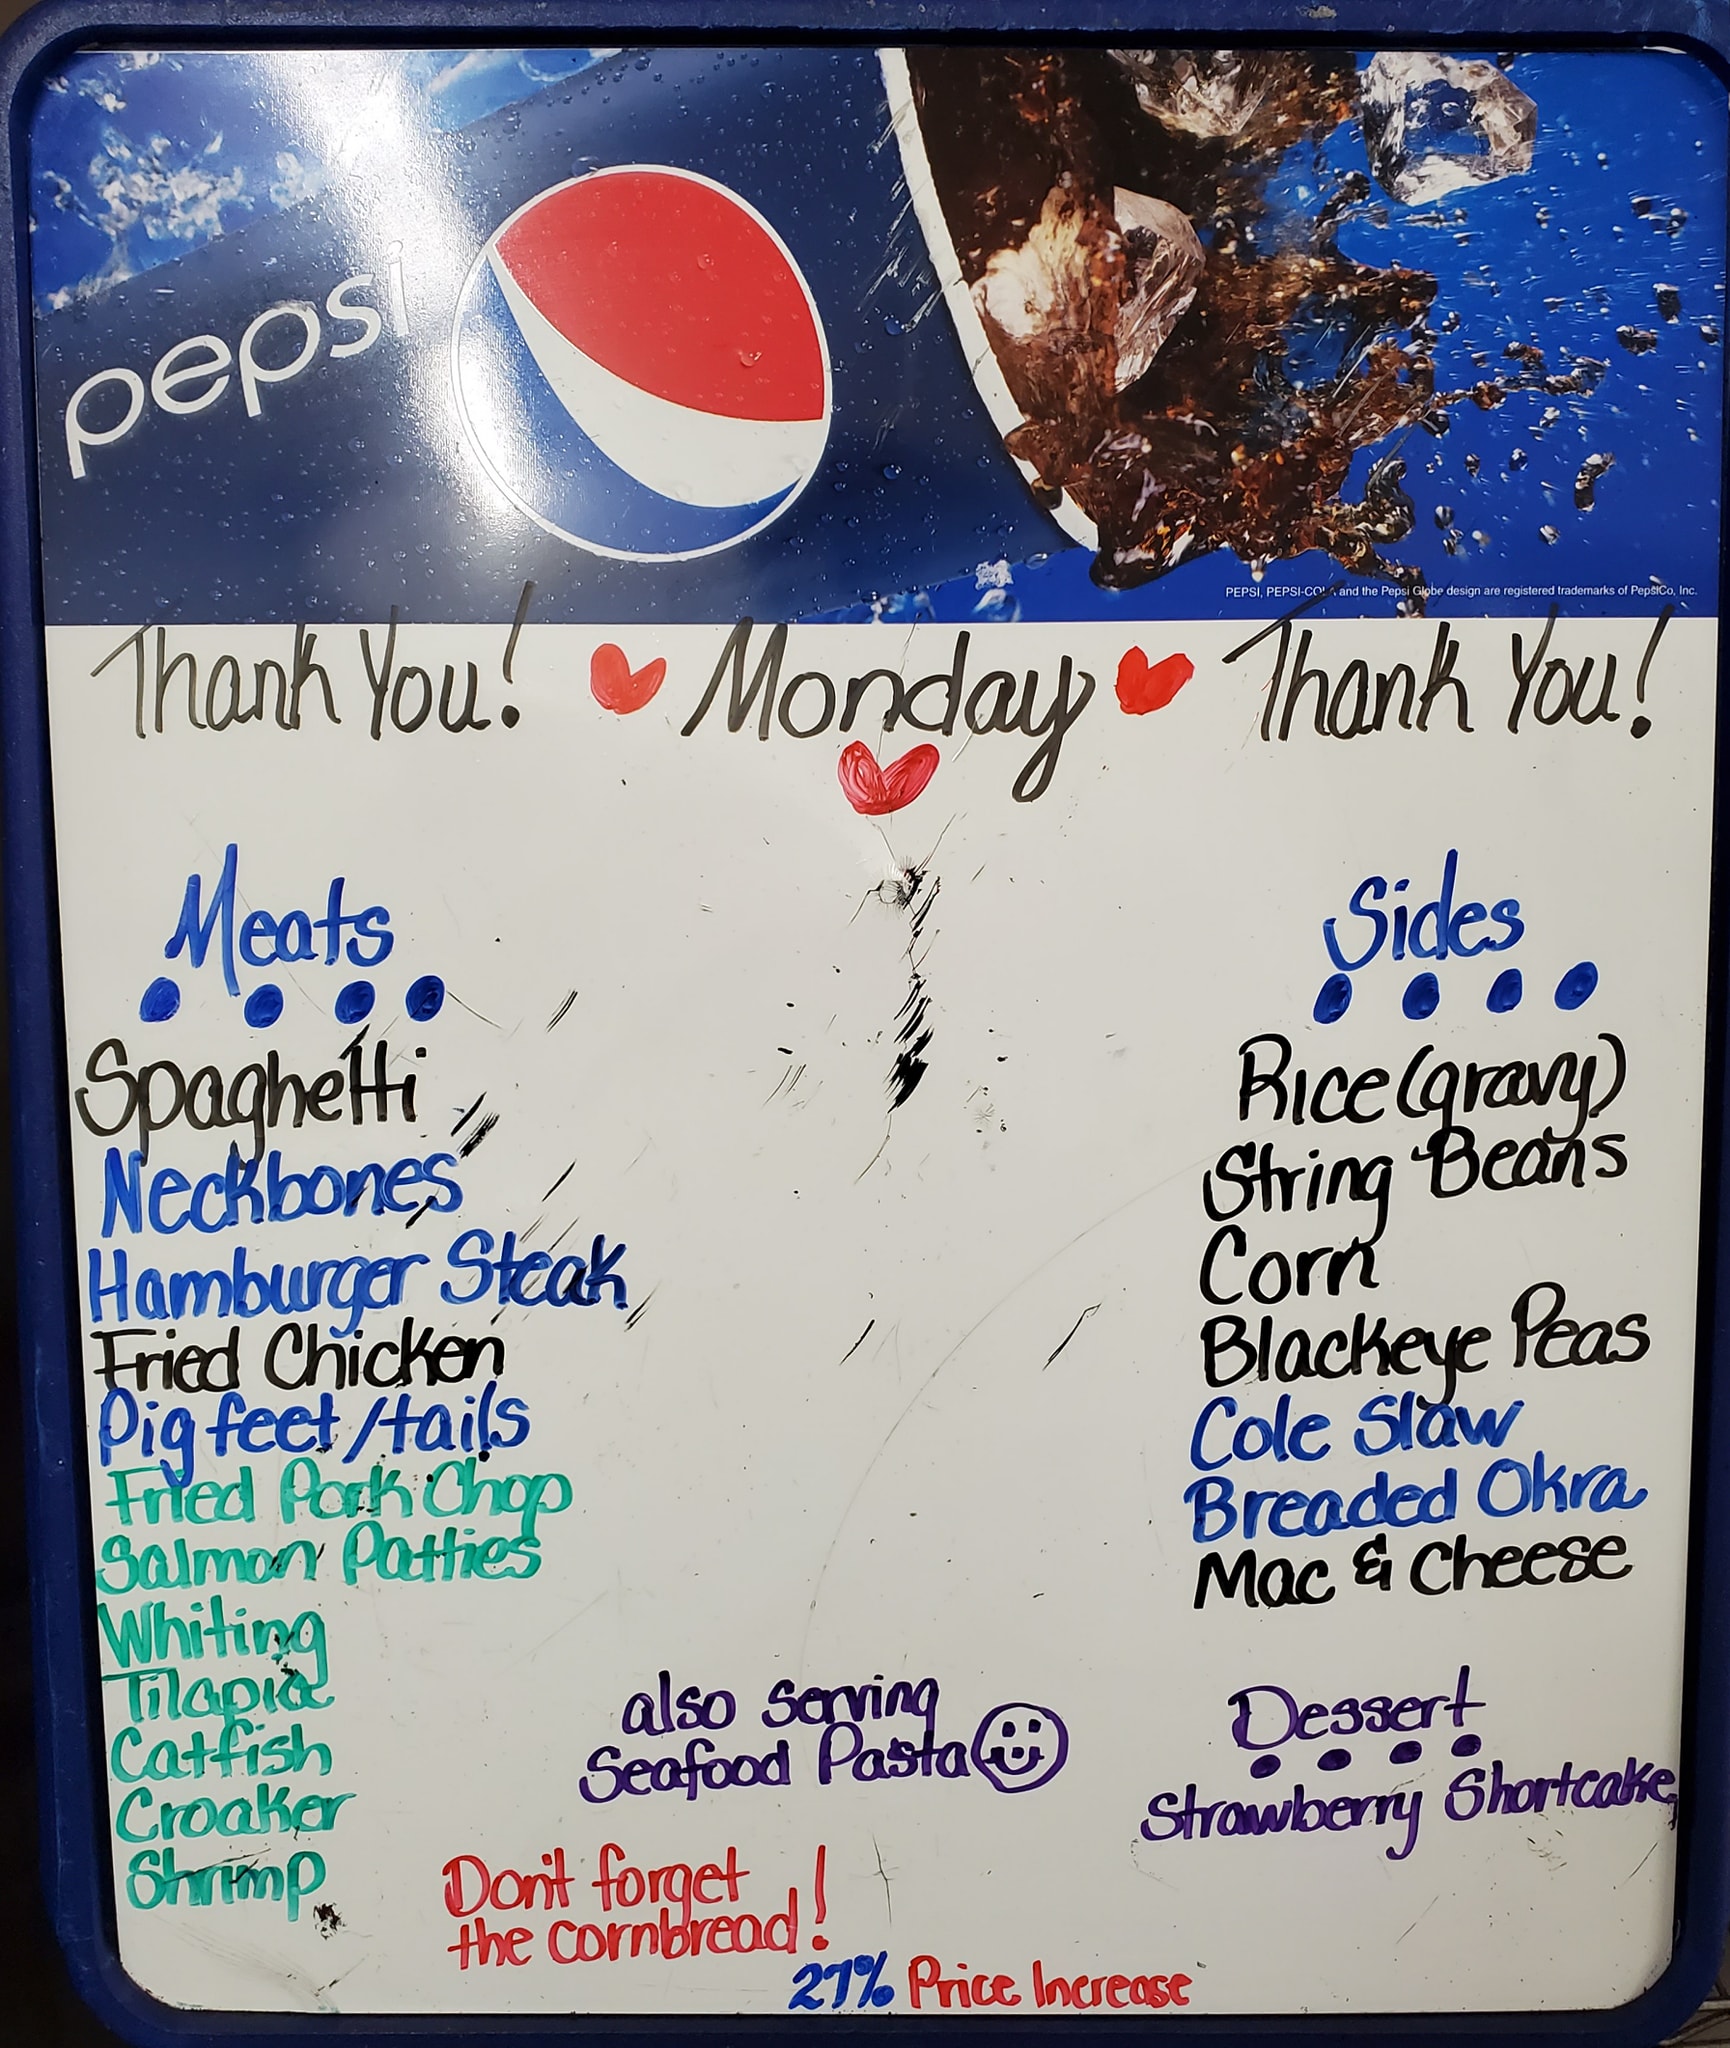 pepsi
PEPSI, PEPSI-COLA and the Pepsi Globe design are registered trademarks of PepsiCo, Inc.
Thank You! Monday Thank You!
Meats
Spaghetti
Neckbones
Hamburger Steak
Fried Chicken
Pig feet/tails
Fried Pork Chop
Salmon Patties
Whiting
Tilapia
Catfish
Croaker
Shrimp
Sides
Rice (gravy)
String Beans
Corn
Blackeye Peas
Cole Slaw
Breaded Okra
Mac & Cheese
also serving
Seafood Pasta
Dessert
Strawberry Shortcake
Don't forget
the cornbread!
27% Price Increase